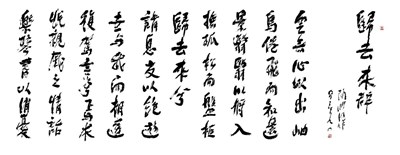 歸去來辭
雲無心以出岫
鳥倦飛而知還
景翳翳以將入
撫孤松而盤桓
歸去來兮
請息交以絕遊
世與我而相遺
復駕言兮焉求
悅親戚之情話
樂琴書以消憂